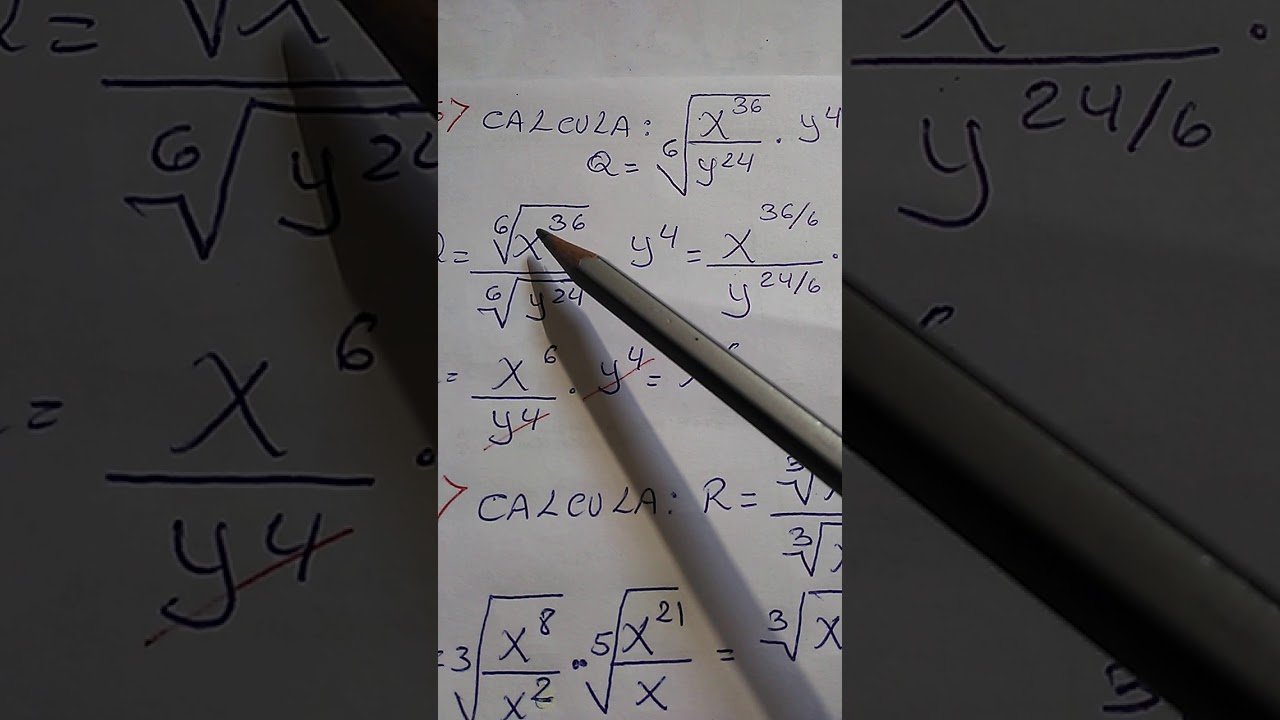 67 CALCULA:
Q = ⁶√(x³⁶/y²⁴) · y⁴
= ⁶√x³⁶/⁶√y²⁴ y⁴ = x^(36/6)/y^(24/6) ·
= x⁶/y⁴ · y⁴ =
> CALCULA: R =
= ³√(x⁸/x²) · ⁵√(x²¹/x) = ³√x